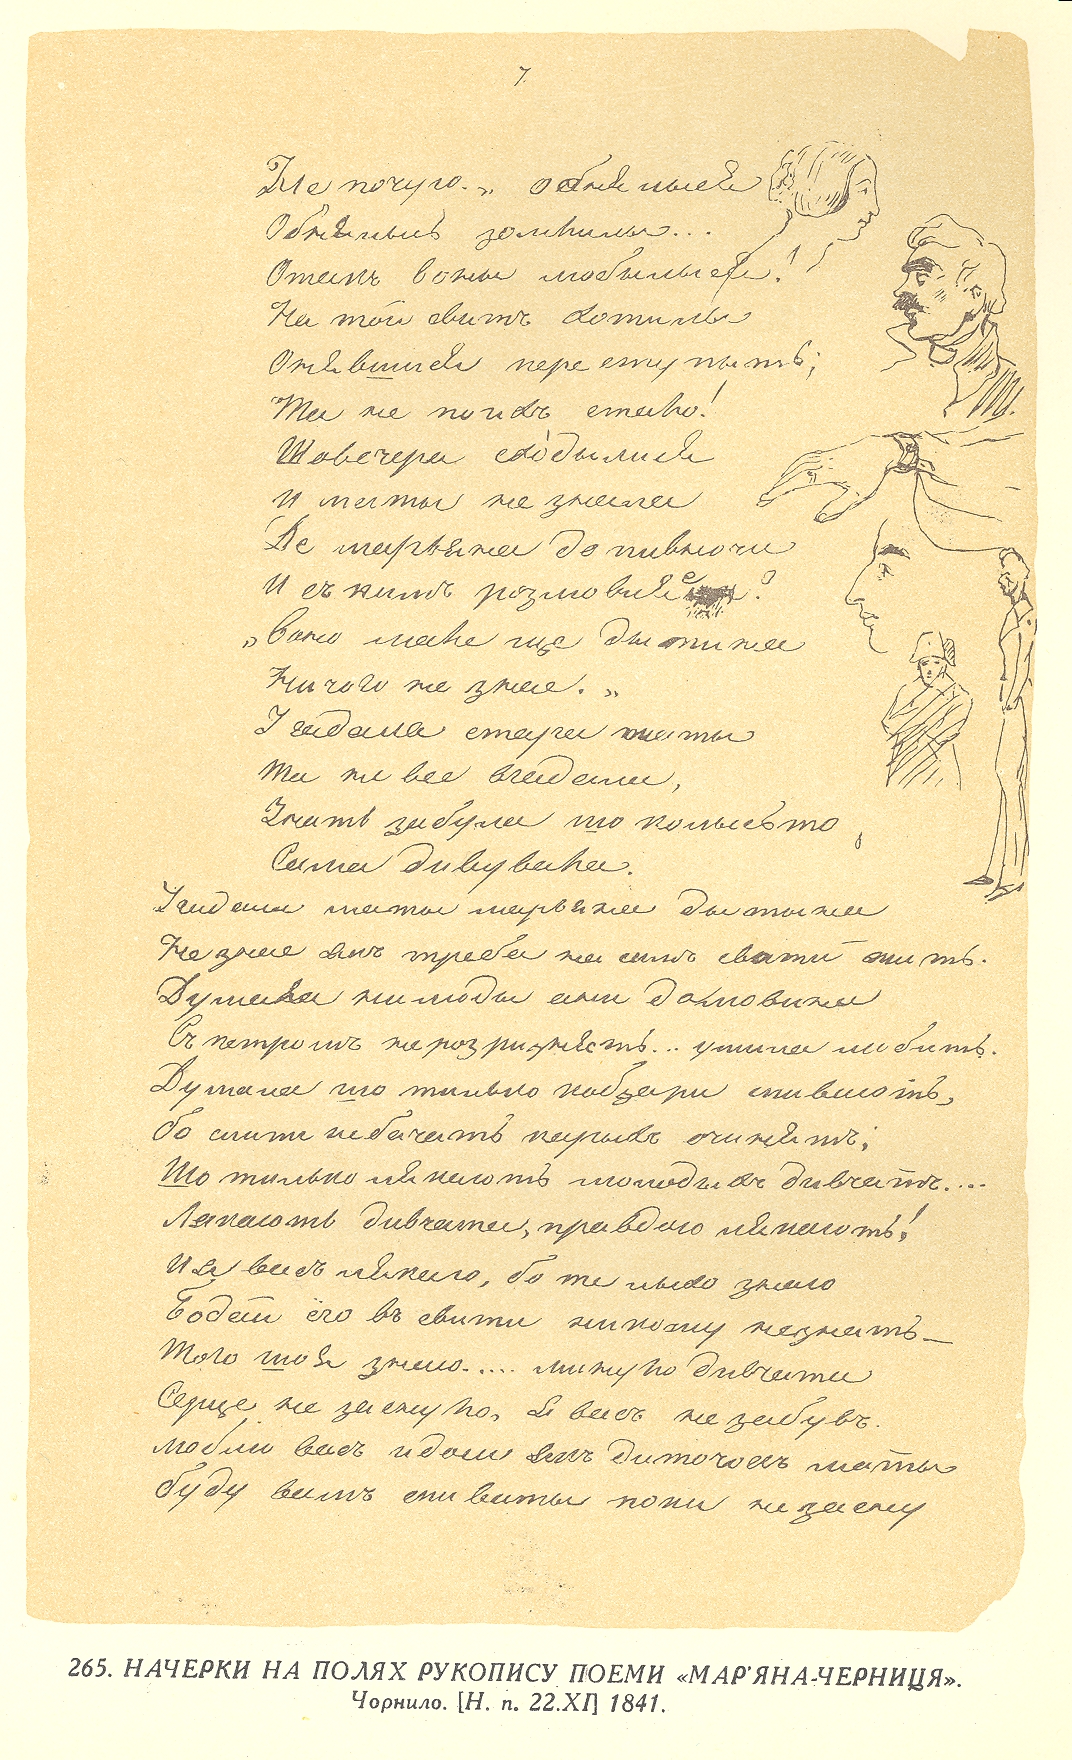 7
Не почую.„ обнялыся
Обнялысь зомлилы...
Отакъ воны любылыся!
На той свитъ хотилы
Обнявшися переступыть;
Та не по ихъ стало!
Шовечера сходылися
И маты не знала
Де марьяна до пивночи
И съ кимъ розмовляе?
„Воно мале ще дытина
Ничого не знае.„
Угадала стара маты
Та не все вгадала,
Знать забула що колысьто
Сама дивувала.
Угадала маты марьяна дытына
Не знае якъ треба на симъ свити жить.
Думала ни люды ани домовина
Съ петромъ не розризнять... умила любить.
Думала що тилько кобзари спивають,
Бо слипи небачать карыхъ оченять;
Що тилько лякають молодыхъ дивчатъ....
Лякають дивчата, правдою лякають!
И я васъ лякаю, бо те лыхо знаю
Бодай ёго въ свити никому незнать—
Того що я знаю.... минуло дивчата
Серце не заснуло, я васъ не забувъ.
люблю васъ и доси якъ диточокъ маты
буду вамъ спиваты поки не засну
265. НАЧЕРКИ НА ПОЛЯХ РУКОПИСУ ПОЕМИ «МАР'ЯНА-ЧЕРНИЦЯ».
Чорнило. [Н. п. 22.XI] 1841.